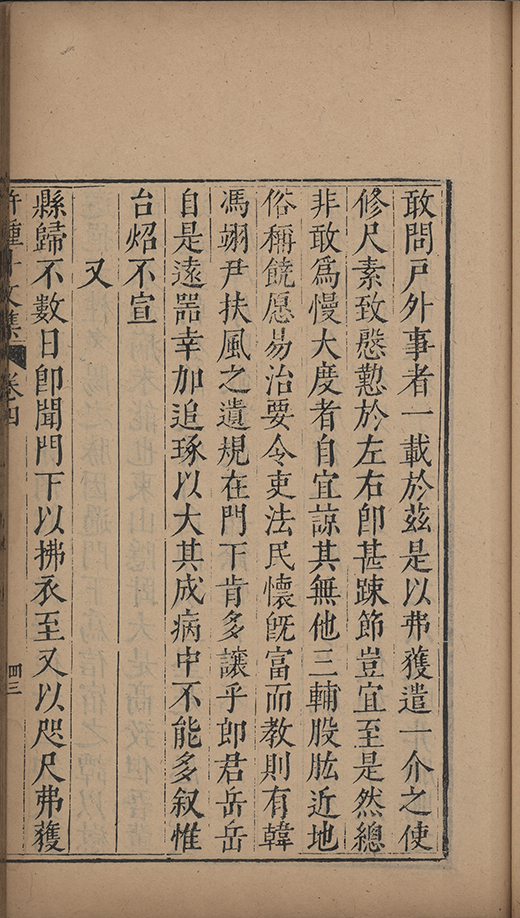 敢問戶外事者一載於茲是以弗獲遣一介之使
修尺素致慇懃於左右卽甚踈節豈宜至是然總
非敢爲慢大度者自宜諒其無他三輔股肱近地
俗稱饒愿易治要令吏法民懷旣富而教則有韓
馮翊尹扶風之遺規在門下肯多讓乎卽君岳岳
自是遠噐幸加追琢以大其成病中不能多叙惟
台炤不宣
又
縣歸不數日卽聞門下以拂衣至又以咫尺弗獲
卷四
四三